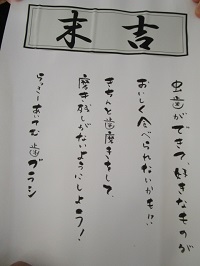 末吉
虫歯ができて、好きなものが
おいしく食べられないかも!?
きちんと歯磨きをして、
磨き残しがないようにしよう!
らっきーあいてむ 歯ブラシ